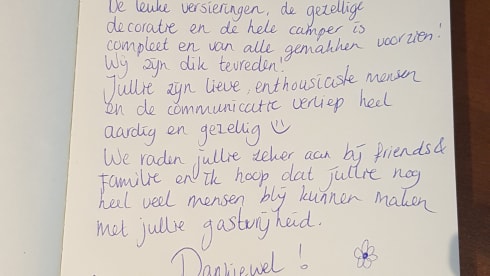 De leuke versieringen, de gezellige
decoratie en de hele camper is
compleet en van alle gemakken voorzien!
Wij zijn dik tevreden!
Jullie zijn lieve, enthousiaste mensen
en de communicatie verliep heel
aardig en gezellig ☺
We raden jullie zeker aan bij friends &
familie en ik hoop dat jullie nog
heel veel mensen blij kunnen maken
met jullie gastvrijheid.
Dankjewel!